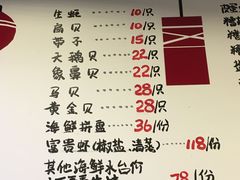 生蚝 10/只
扇贝 10/只
带子 15/只
天鹅贝 22/只
象鼻贝 22/只
马贝 28/只
黄金贝 28/只
海鲜拼盘 36/份
富贵虾(椒盐、清蒸) 118/份
其他海鲜水台付
78/份